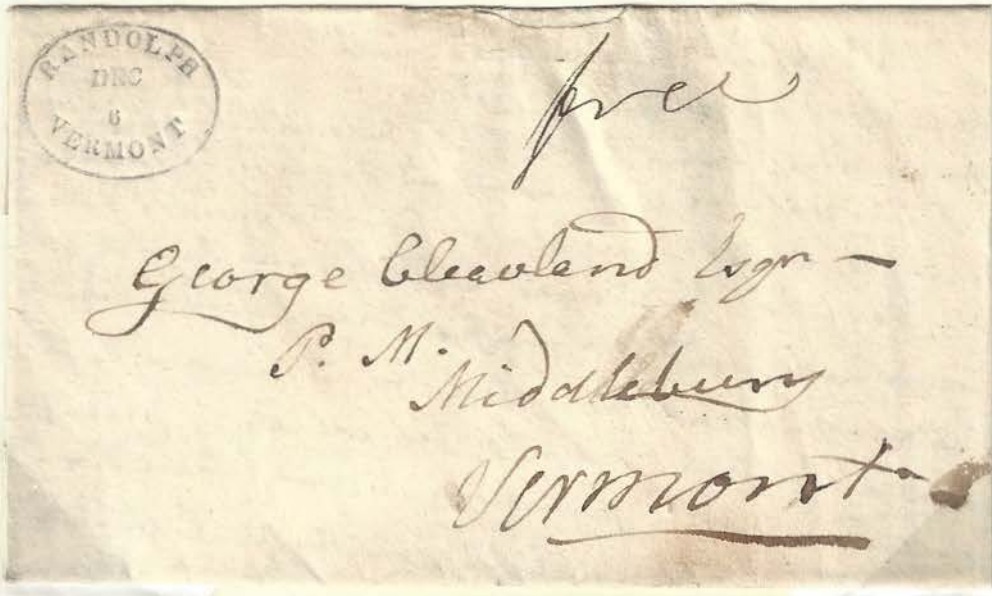 RANDOLPH
DEC
6
VERMONT
free
George Cleaveland Esqr —
P. M.
Middlebury
Vermont